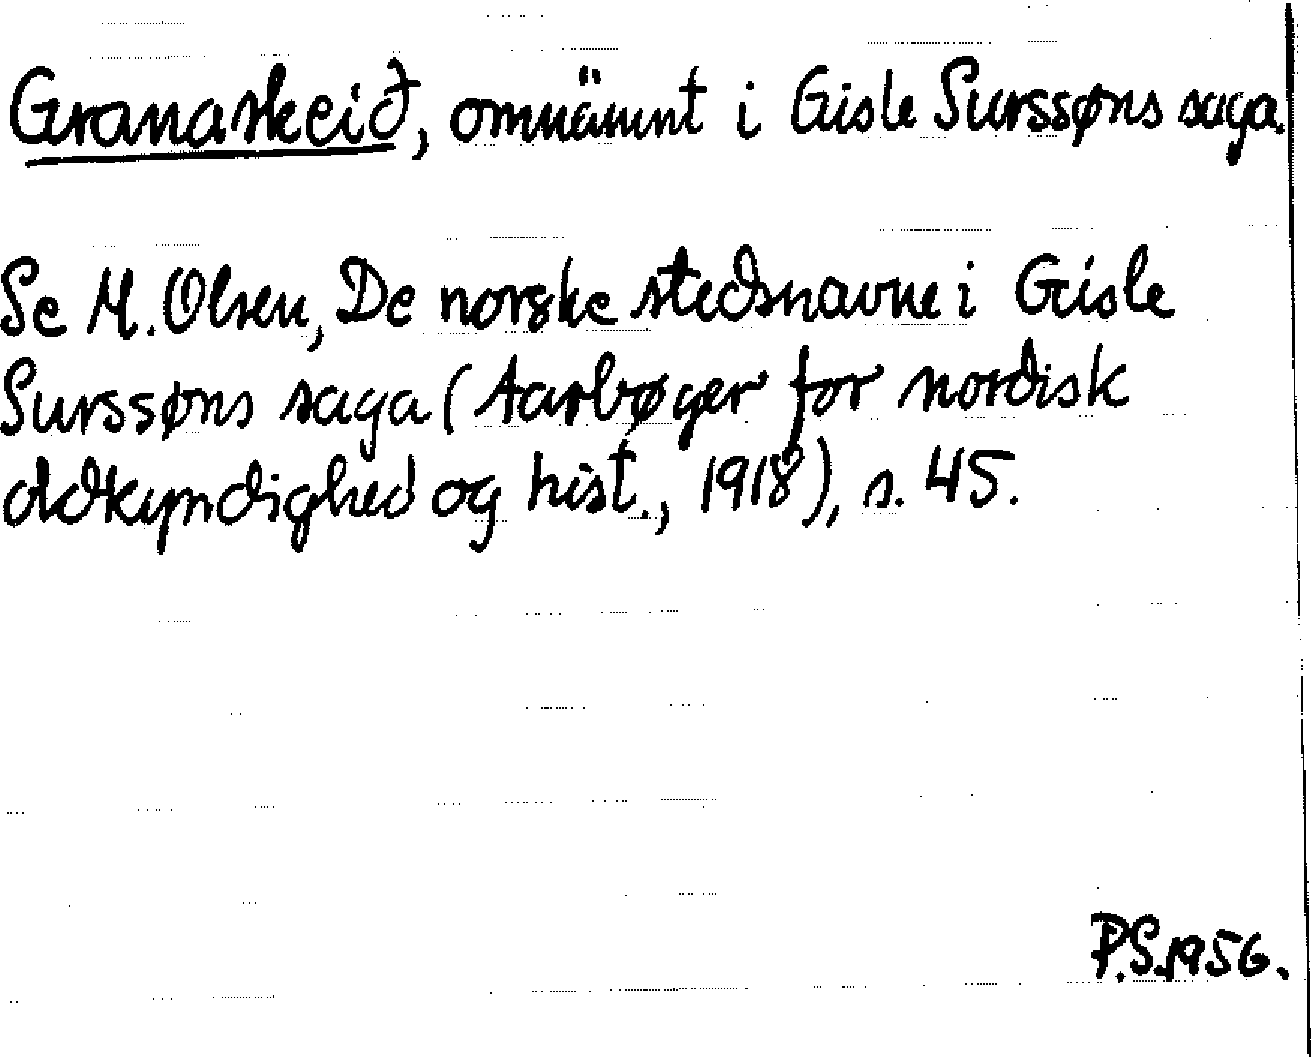 Granaskeið, omnämnt i Gisle Surssøns saga.
Se M. Olsen, De norske stedsnavne i Gisle
Surssøns saga (Aarbøger for nordisk
oldkyndighed og hist., 1918), s. 45.
P.S. 1956.